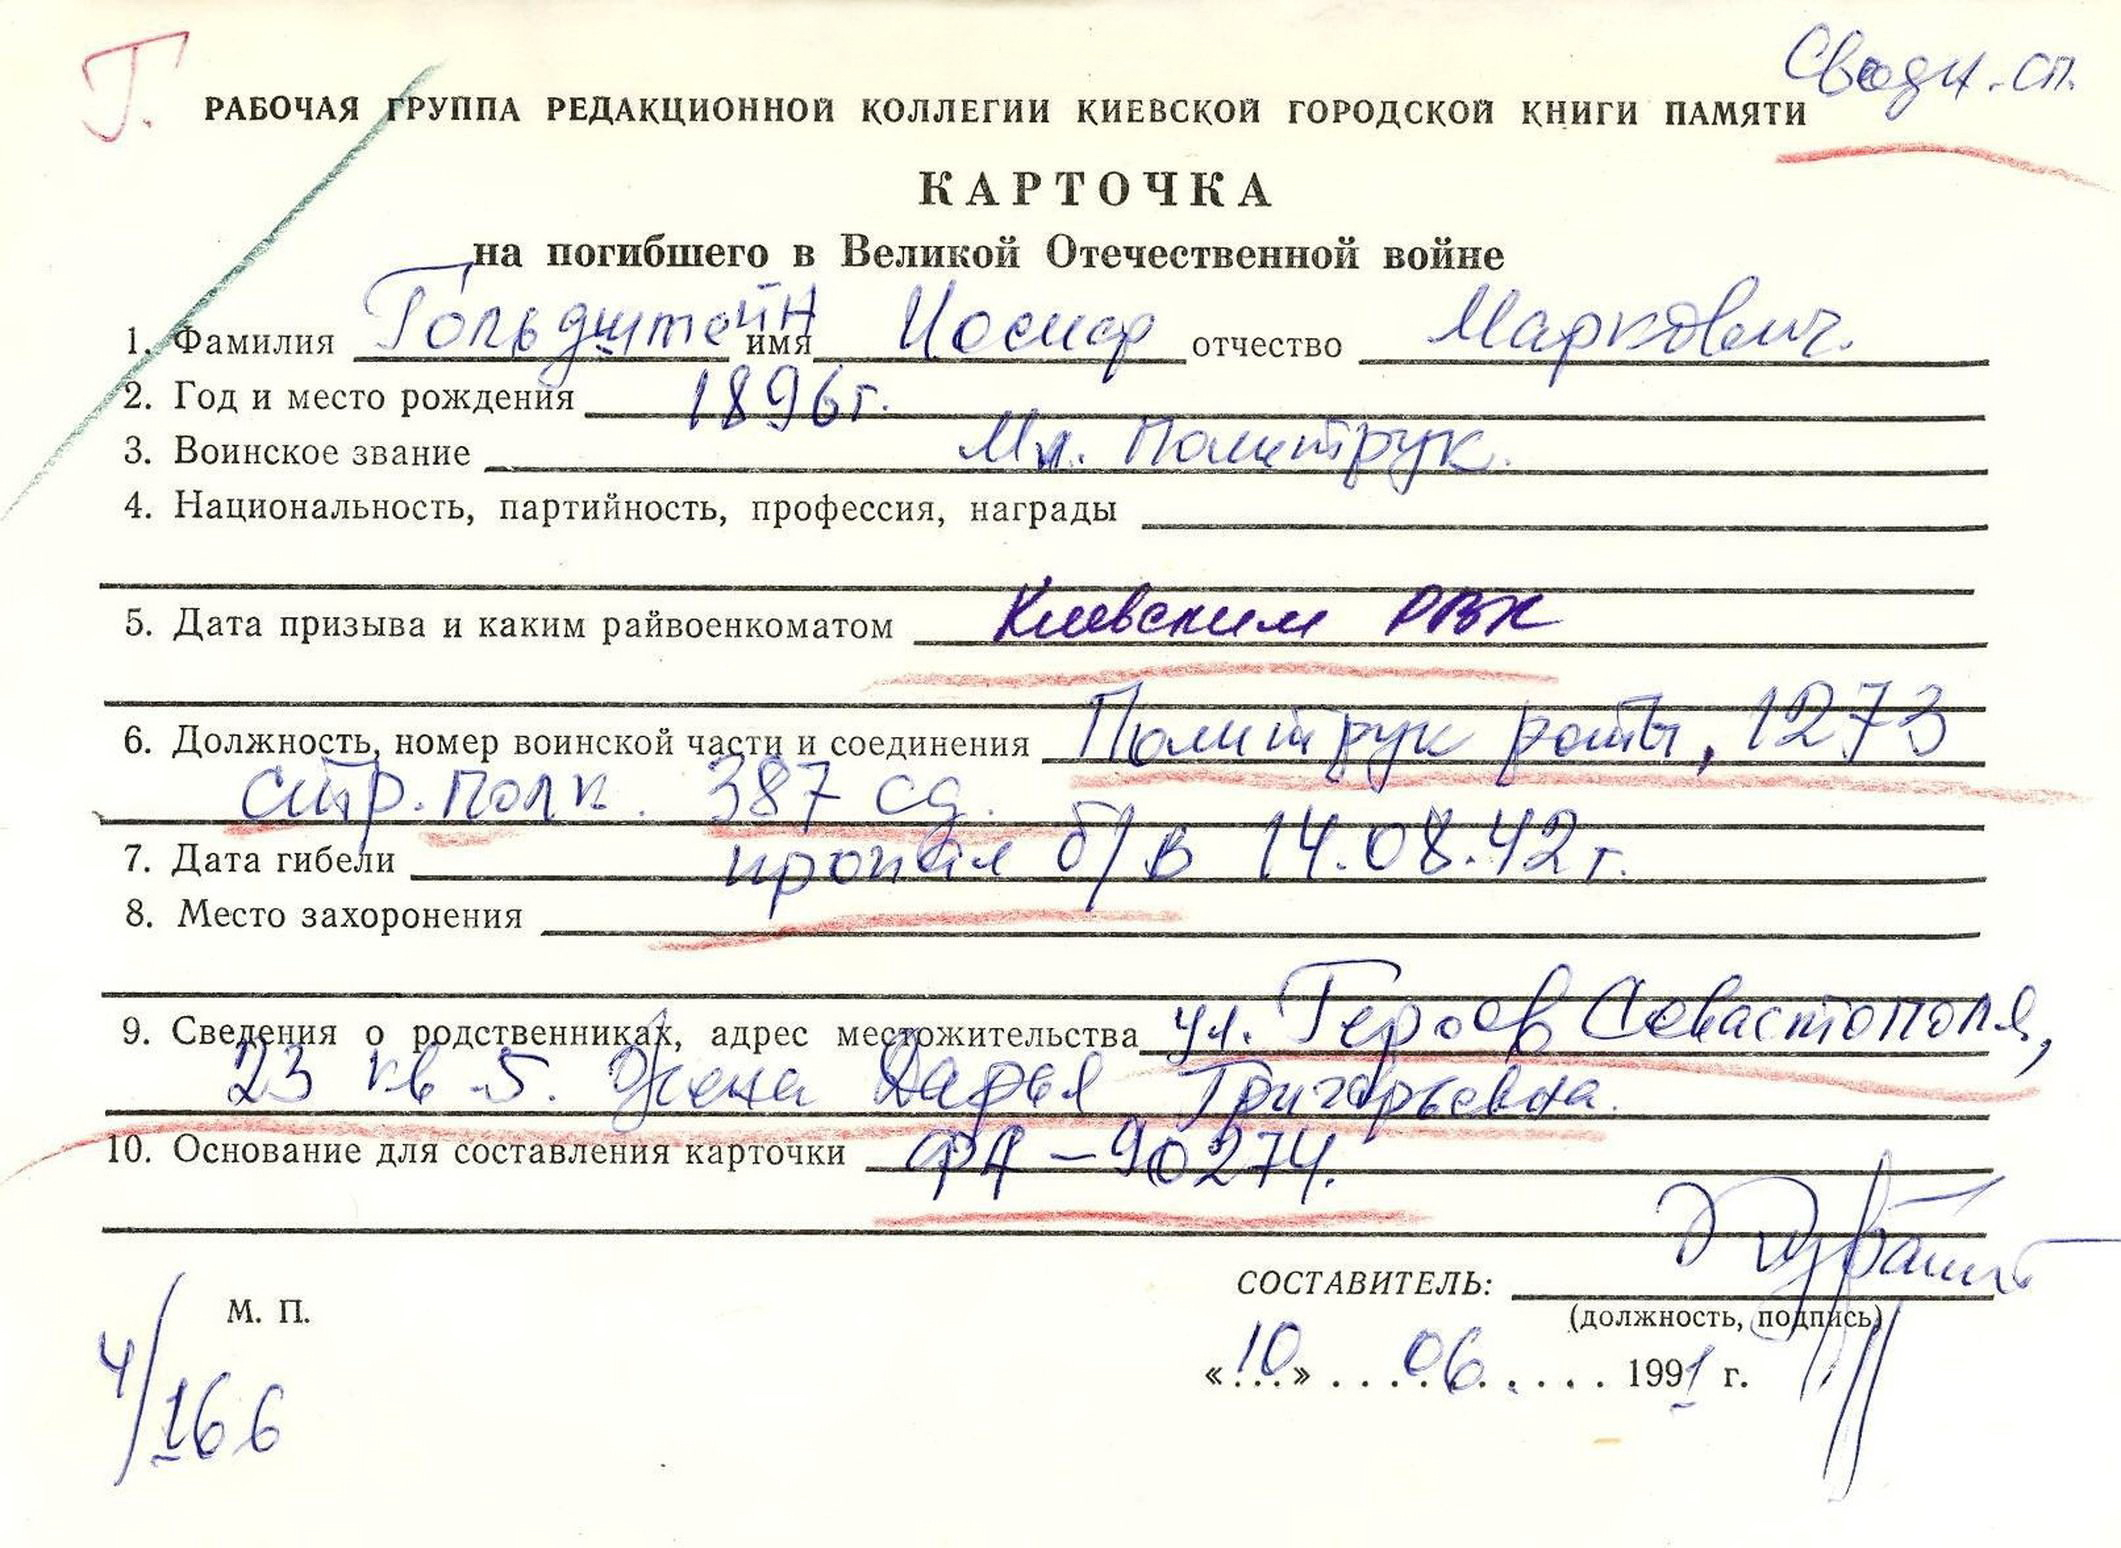 Г.
Сводн. сп.
РАБОЧАЯ ГРУППА РЕДАКЦИОННОЙ КОЛЛЕГИИ КИЕВСКОЙ ГОРОДСКОЙ КНИГИ ПАМЯТИ
КАРТОЧКА
на погибшего в Великой Отечественной войне
1. Фамилия Гольдштейн имя Иосиф отчество Маркович.
2. Год и место рождения 1896г.
3. Воинское звание Мл. Политрук.
4. Национальность, партийность, профессия, награды
5. Дата призыва и каким райвоенкоматом Киевским РВК
6. Должность, номер воинской части и соединения Политрук роты, 1273
стр. полк. 387 сд.
7. Дата гибели пропал б/в 14.08.42г.
8. Место захоронения
9. Сведения о родственниках, адрес местожительства ул. Героев Севастополя,
23 кв 5. Жена Дарья Григорьевна.
10. Основание для составления карточки ФД – 90274.
СОСТАВИТЕЛЬ:
М. П.
(должность, подпись)
«10» 06 1991 г.
4/166